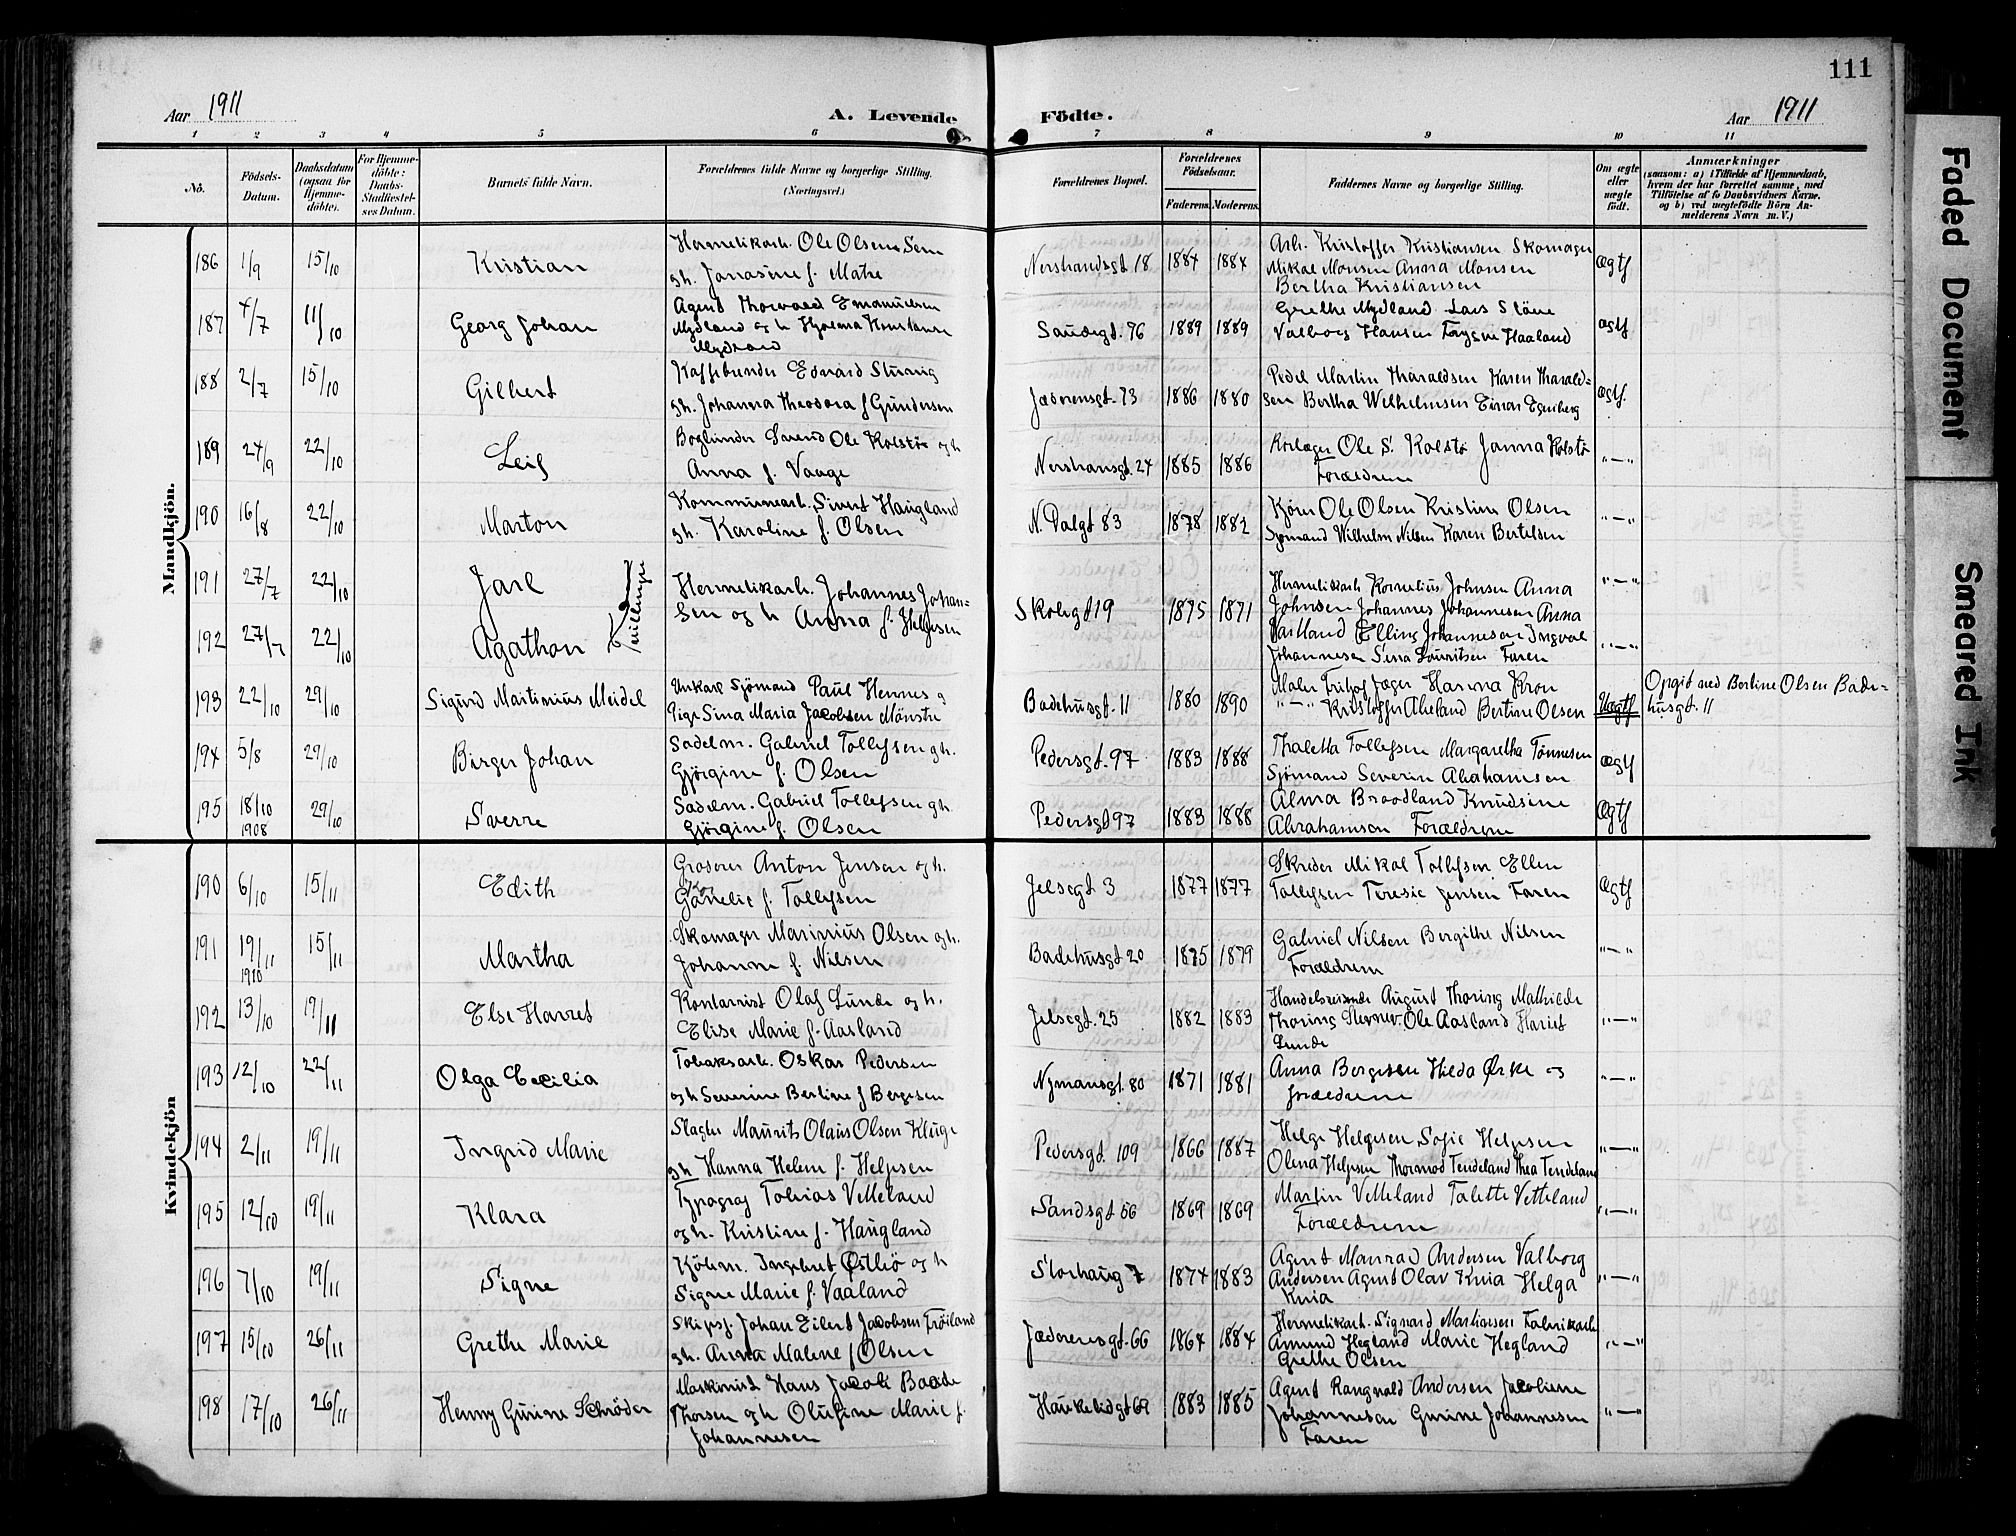 111
Aar 1911
A. Levende Födte.
Aar 1911
1 2 3 4 5 6 7 8 9 10 11
No.
Födsels-Datum.
Daabsdatum (ogsaa for Hjemme-döbte).
For Hjemme-döbte: Daabs-Stadfæstel-ses Datum.
Barnets fulde Navn.
Forældrenes fulde Navne og borgerlige Stilling.
(Næringsvei.)
Forældrenes Bopæl.
Forældrenes Födselsaar.
Faderens. Moderens.
Faddernes Navne og borgerlige Stilling.
Om ægte eller uægte født.
Anmærkninger
(saasom: a) i Tilfælde af Hjemmedaab,
hvem der har forrettet samme, med
Tilföielse af to Daabsvidners Navne.
og b) ved uægtefödte Börn An-
melderens Navn m. V.)
Mandkjön.
186 1/9 15/10 Kristian
Hermetikarb. Ole Olsen Sem
gh. Jonasine f. Matre
Nershandsgt 18 1884 1884
Arb. Kristoffer Kristiansen Skomager
Mikal Monsen Anna Monsen
Bertha Kristiansen
Ægtf
187 4/7 11/10 Georg Johan
Agent Thorvald Emanuelsen
Mydland og h Hjalma Konstanse
Mydland
Sandsgt. 76 1889 1889
Grethe Mydland Lars Stöne
Valborg Hansen Trygve Haaland
ægtf
188 2/7 15/10 Gilbert
gh. Johanna Theodora f Gundersen
Jædrensgt. 73 1886 1880
Pedel Martin Tharaldsen Karen Tharald-
sen Bertha Wilhelmsen Einar Egeberg
ægtf.
189 24/9 22/10 Leif
Bogbinder Svend Ole Kolstö og h
Anna f. Vaage
Nershansgt. 24 1885 1886
Ole S. Kolstö Janna Kolstö
Forældrene
"—"
190 16/8 22/10 Marton
Kommunearb. Sivert Haugland
gh. Karoline f. Olsen
N. Dalgt 83 1878 1882
Kjörer Ole Olsen Kristine Olsen
Sjømand Wilhelm Nilsen Karen Bertelsen
"—"
191 27/7 22/10 Jarl
192 27/7 22/10 Agathon
Tvillinger
Hermetikarb. Johannes Johan-
sen og h Anna f. Helgesen
Skolegt 19 1875 1871
Hermetikarb Kornelius Johnsen Anna
Johnsen Johannes Johannesen Anna
Vastland Elling Johannesen Ingval
Johannesen Sina Lauritsen Faren
"—"
"—"
193 22/10 29/10 Sigurd Martinius Meidel
Unkarl Sjömand Paul Hennes og
Pige Sina Maria Jacobsen Mönstre
Badehusgt. 11 1880 1890
Maler Fritjof Jæger Hanna Kron
"—" Kristoffer Aheland Bertine Olsen
Uægtf
Opgit ved Bertine Olsen Bade-
husgt. 11
194 5/8 29/10 Birger Johan
Sadelm. Gabriel Tollefsen gh.
Gjörgine f. Olsen
Pedersgt. 97 1883 1888
Thaletta Tollefsen Margaretha Tönnesen
Sjömand Severin Abrahamsen
Ægtf
195 18/10 1908 29/10 Sverre
Sadelm. Gabriel Tollefsen gh.
Gjörgine f. Olsen
Pedersgt 97 1883 1888
Alma Broadland Knudsine
Abrahamsen Forældrene
Ægtf
Kvindekjön
190 6/10 15/11 Edith
Grosserer Anton Jensen og h.
f. Tollefsen
Jelsegt 3 1877 1877
Skreder Mikal Tollefsen Ellen
Tollefsen Teresie Jensen Faren
Ægtf
191 19/11 1910 15/11 Martha
Skomager Marinius Olsen og h.
Johanne f. Nilsen
Badehusgt 20 1875 1879
Gabriel Nilsen Bergithe Nilsen
Forældrene
"—"
192 13/10 19/11 Else Harriet
Kontorist Olaf Lunde og h.
Elise Marie f. Aasland
Jelsegt. 25 1882 1883
Handelsreisende August Thoring Mathilde
Thoring Ole Aasland Hariet
Lunde
"—"
193 12/10 22/11 Olga Cecilia
Tobaksarb. Oskar Pedersen
og h Severine Bertine f Bergesen
Nymansgt. 80 1871 1881
Anna Bergesen Hilda Ørke og
forældrene
"—"
194 2/11 19/11 Ingrid Marie
Slagter Maurits Olaus Olsen Kluge
gh Hanna Helene f. Helgesen
Pedersgt. 109 1866 1887
Helge Helgesen Sofie Helgesen
Olena Helgesen Thormod Tendeland Thea Tendeland
"—"
195 12/10 19/11 Klara
Typograf Tobias Vetteland
og h. Kristine f. Haugland
Sandsgt 66 1869 1869
Martin Vetteland Talette Vetteland
Forældrene
"—"
196 7/10 19/11 Signe
Kjöbm. Ingebret Østbö og h
Signe Marie f. Vaaland
Storhaug 7 1874 1883
Agent Manrad Andersen Valborg
Andersen Agent Olav Knia Helga
Knia
"—"
197 15/10 26/11 Grethe Marie
Skipsf. Johan Eilert Jacobsen Fröiland
gh. Anna Malene f Olsen
Jædrensgt. 66 1864 1884
Hermetikarb. Sigvard Martinsen Fabrikarb
Amund Hegland Marie Hegland
Grethe Olsen
"—"
198 17/10 26/11 Henny Gurine Schröder
Maskinist Hans Jacob Baade
Thorsen og h Olufine Marie f.
Johannesen
Haukeligt 69 1883 1885
Agent Rangvald Andersen Jacobine
Johannesen Gurine Johannesen
Faren
"—"
Faded Document
Smeared Ink